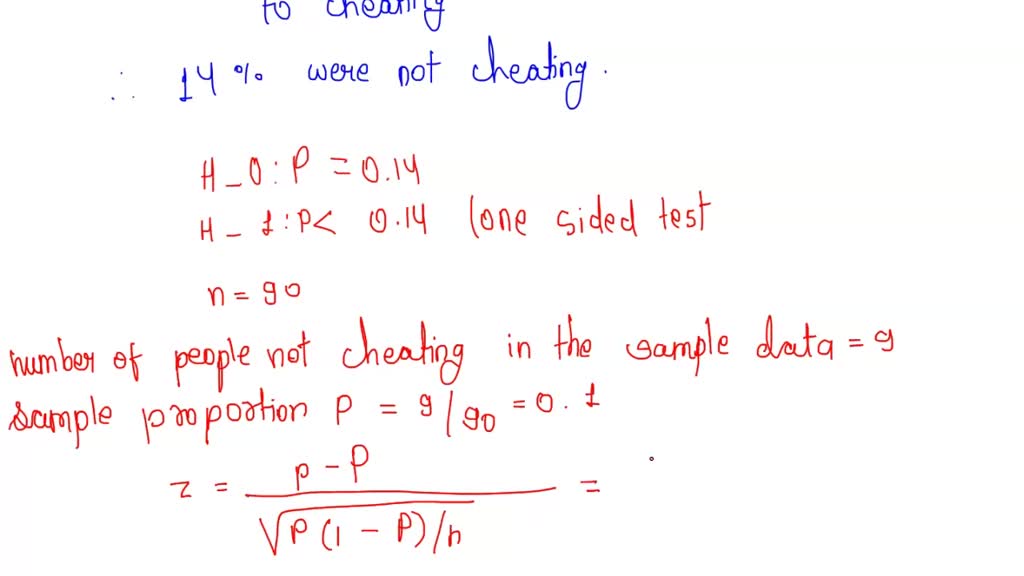 to cheating
∴ 14% were not cheating.
H_0 : P = 0.14
H_1 : P < 0.14 (one sided test
n = 90
number of people not cheating in the sample data = 9
sample proportion p = 9/90 = 0.1
z = p - P / √P(1 - P)/n =